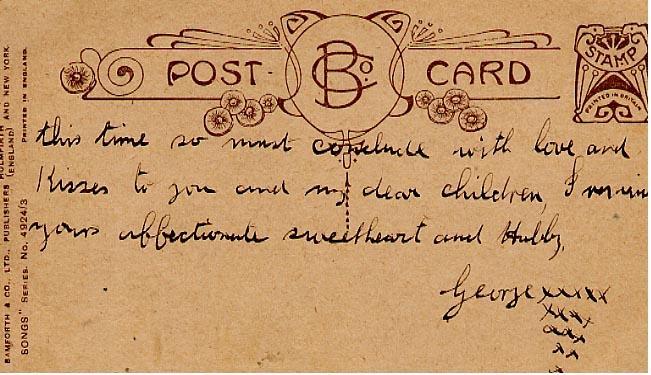 POST CARD
BCo.
STAMP
PRINTED IN BRITAIN
this time so must conclude with love and
Kisses to you and my dear children, I remain
yours affectionate sweetheart and Hubby,
George xxxxx
xxxx
xxx
xx
x
BAMFORTH & CO., LTD., PUBLISHERS HOLMFIRTH (ENGLAND) AND NEW YORK.
"SONGS" SERIES. No. 4924/3 PRINTED IN ENGLAND.